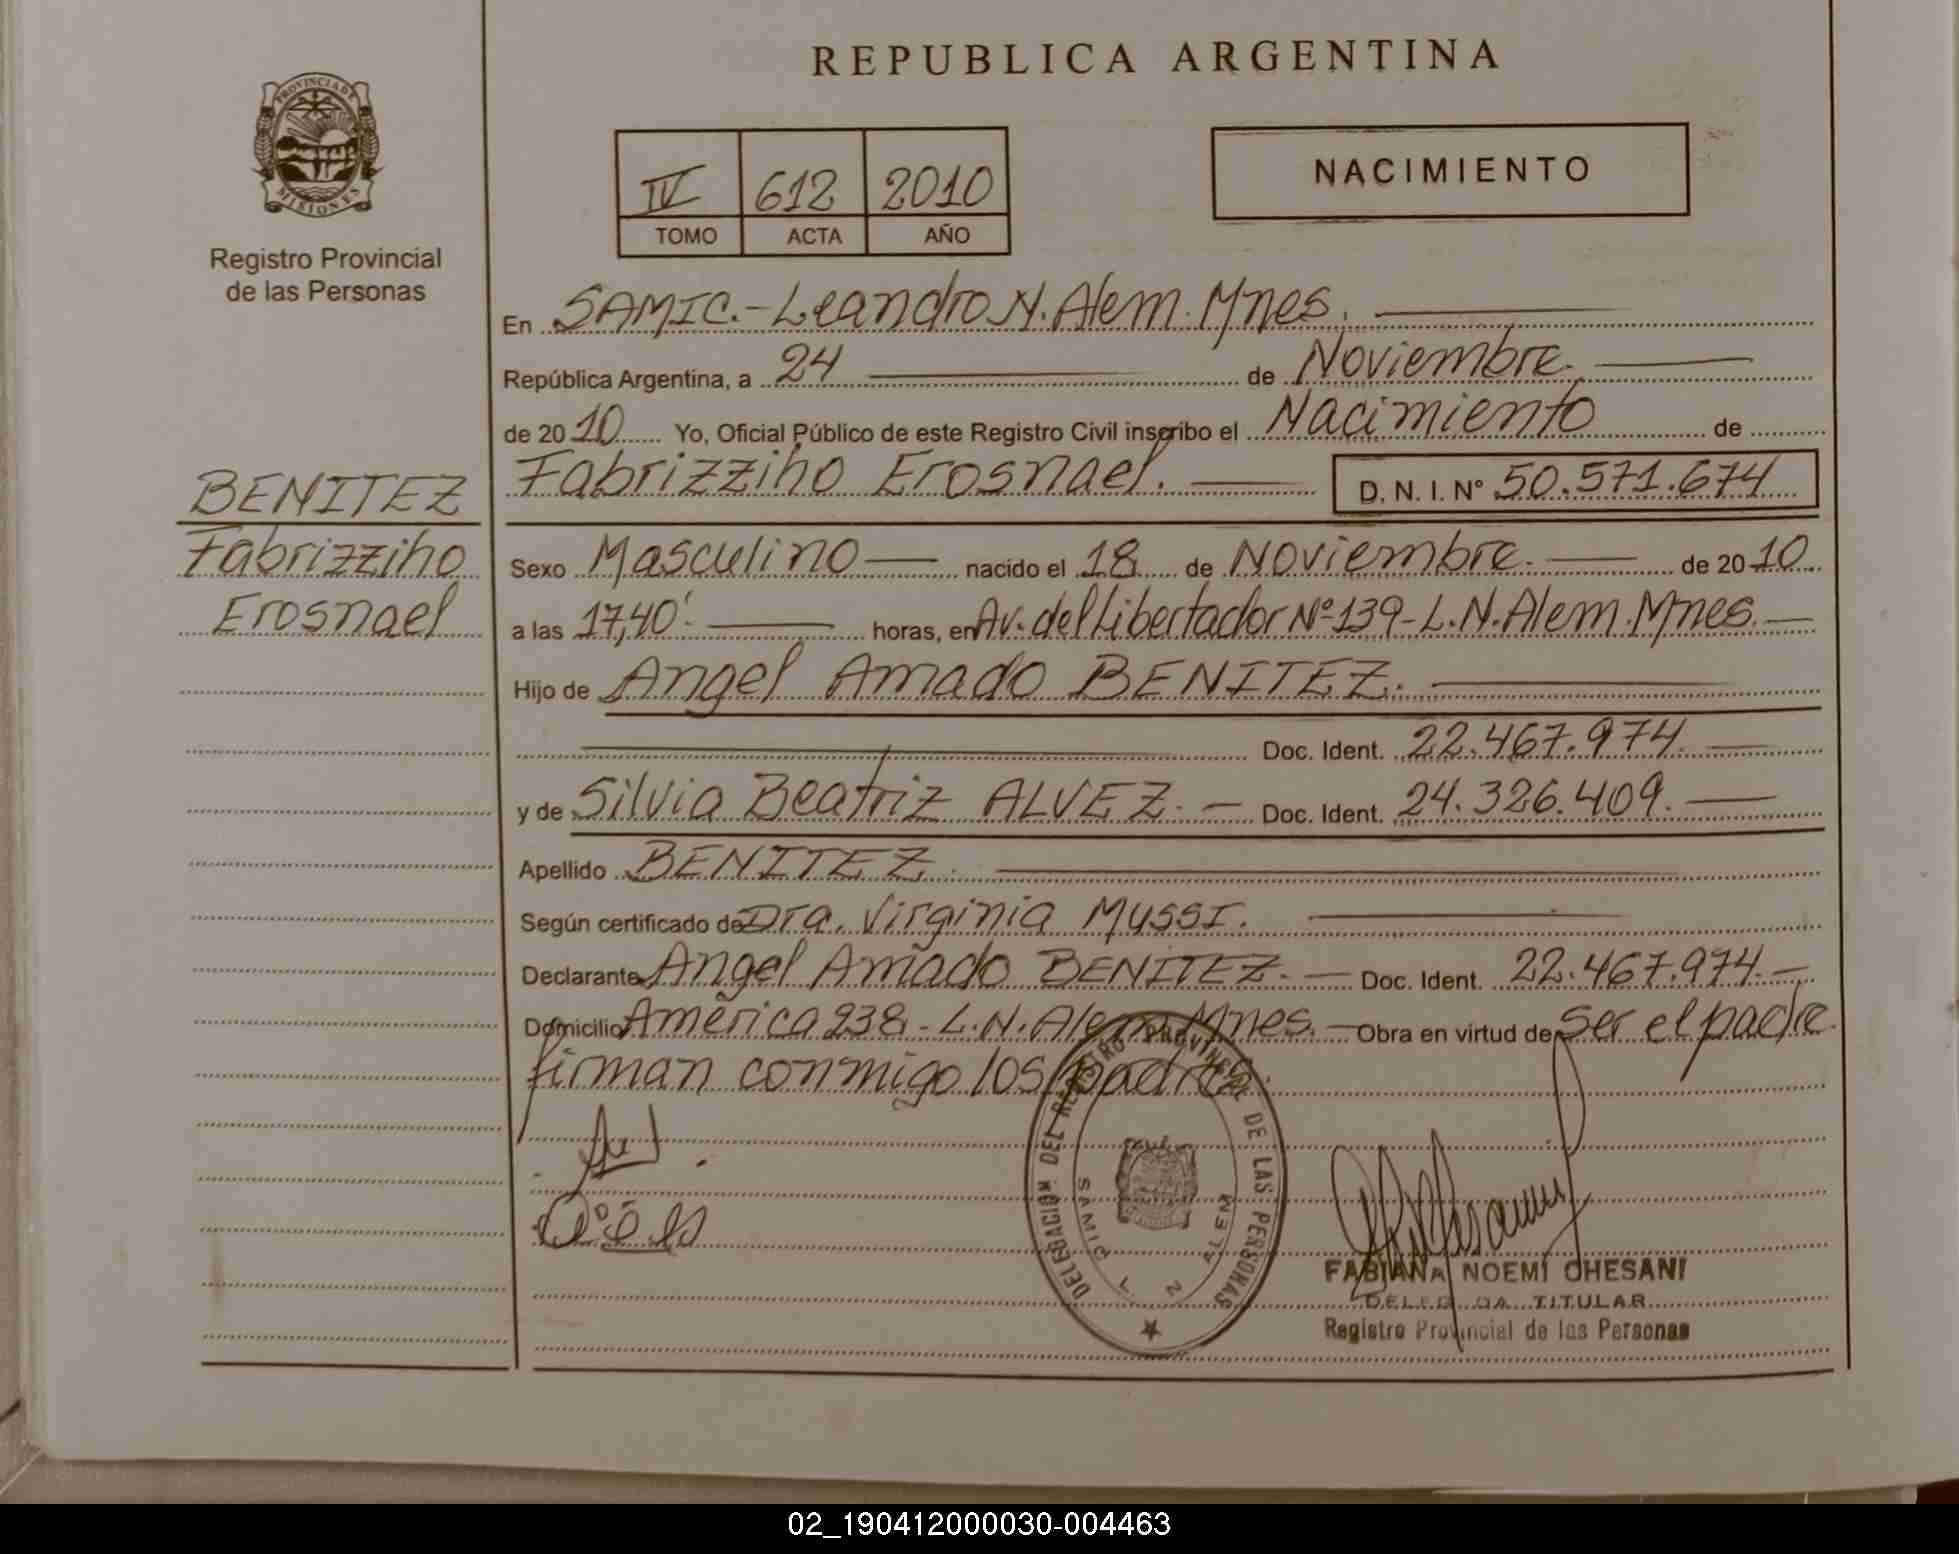 REPUBLICA ARGENTINA
PROVINCIA DE MISIONES
Registro Provincial
de las Personas
IV 612 2010
TOMO ACTA AÑO
NACIMIENTO
En SAMIC.-Leandro N. Alem. Mnes.
República Argentina, a 24 de Noviembre.
de 2010 Yo, Oficial Público de este Registro Civil inscribo el Nacimiento de
Fabrizziho Erosnael. D. N. I. Nº 50.571.674
BENITEZ
Fabrizziho
Erosnael
Sexo Masculino nacido el 18 de Noviembre. de 2010
a las 17,40'. horas, en Av. del Libertador Nº 139-L.N. Alem. Mnes.
Hijo de Angel Amado BENITEZ.
Doc. Ident. 22.467.974.
y de Silvia Beatriz ALVEZ. Doc. Ident. 24.326.409.
Apellido BENITEZ.
Según certificado de Dra. Virginia MUSSI.
Declarante Angel Amado BENITEZ. Doc. Ident. 22.467.974.
Domicilio América 238-L.N. Alem. Mnes. Obra en virtud de Ser el padre.
firman conmigo los padres.
DELEGACION DEL REGISTRO PROVINCIAL DE LAS PERSONAS
SAMIC L. N. ALEM
FABIANA NOEMI CHESANI
DELEGADA TITULAR
Registro Provincial de las Personas
02_190412000030-004463